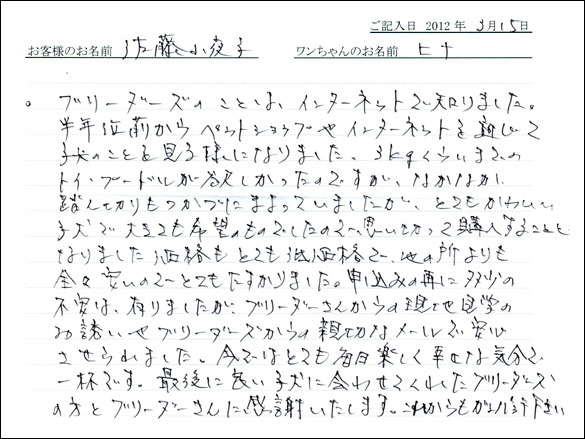 ご記入日 2012年 3月15日
お客様のお名前 佐藤小夜子 ワンちゃんのお名前 ヒナ
。ブリーダーズのことは、インターネットで知りました。
半年位前からペットショップやインターネットを通じて
子犬のことを見る様になりました。3kgくらいまでの
トイ・プードルが欲しかったのですが、なかなか
踏んぎりもつかずにまよっていましたが、とてもかわいい
子犬で大きさも希望のものでしたので思いきって購入することと
なりました。価格もとても低価格で、他の所よりも
全々安いのでとてもたすかりました。申し込みの再に多少の
不安は、有りましたが、ブリーダーさんからの現地見学の
お誘いやブリーダーズからの親切なメールで安心
させられました。今ではとても毎日楽しく幸せな気分で
一杯です。最後に良い子犬に会わせてくれたブリーダーズ
の方とブリーダーさんに感謝いたします。これからもがんばって下さい